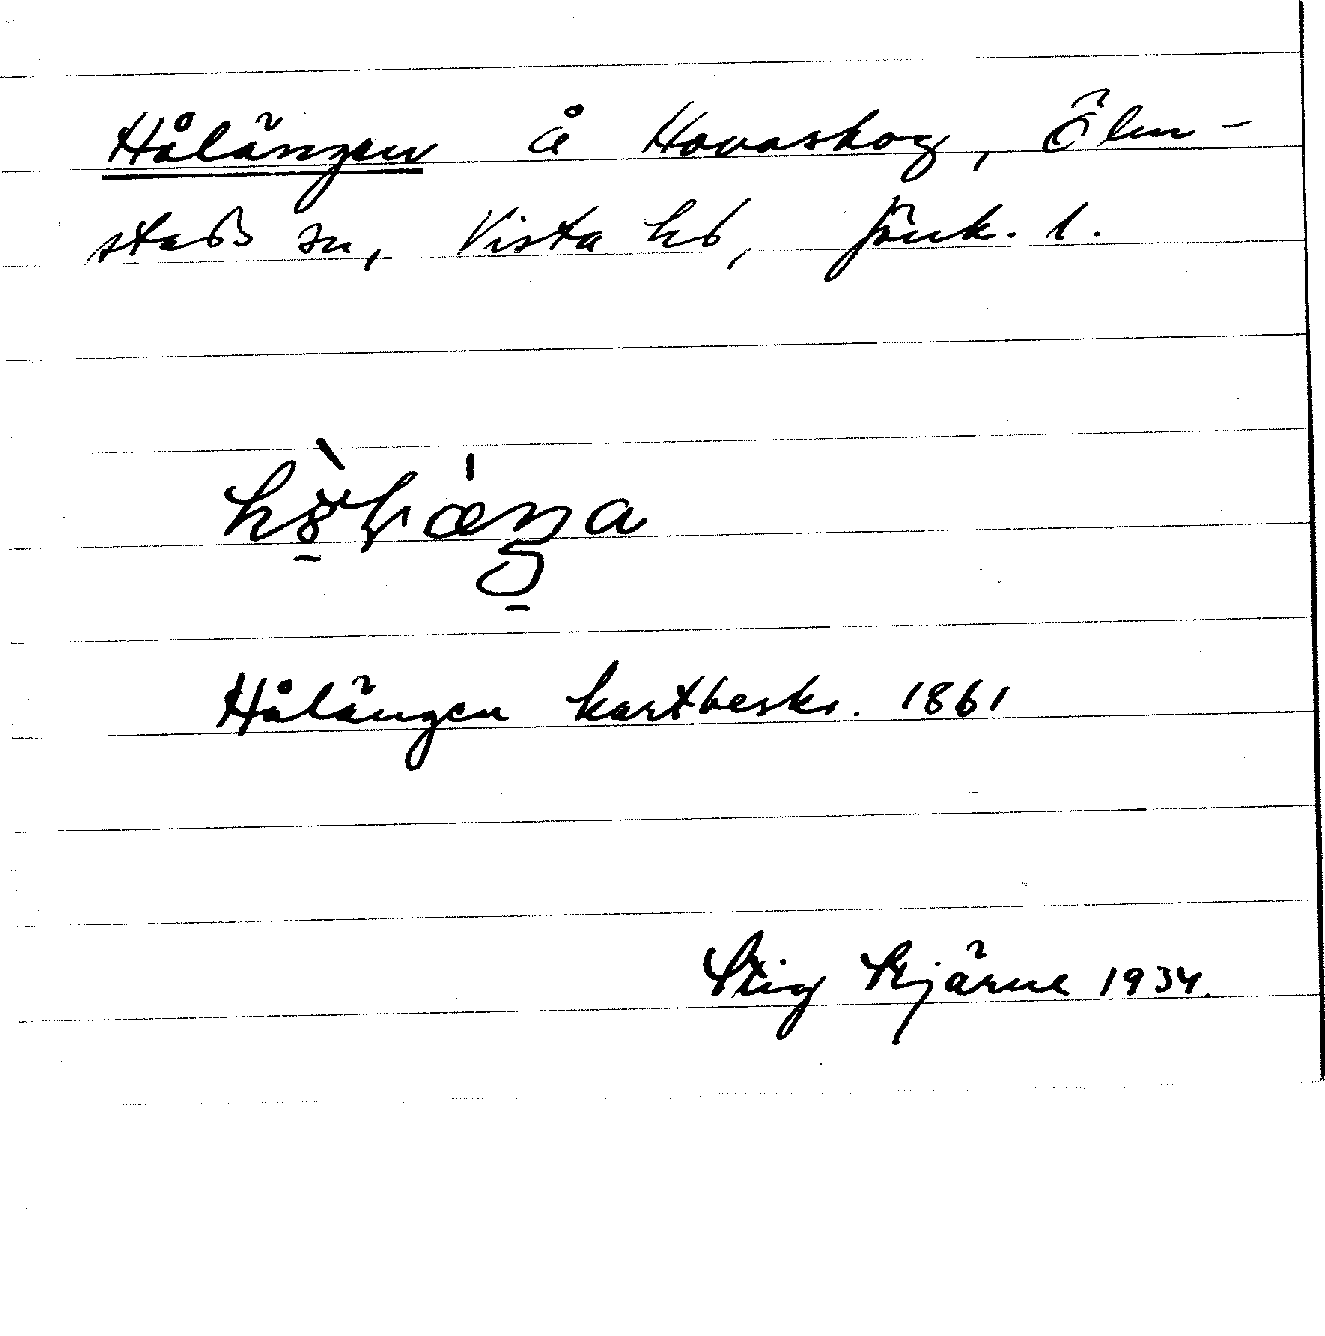 Hålängen å Hovaskog, Ölm-
stads sn, Vista hd, Jönk. l.
Hålängen kartbeskr. 1861
Stig Bjärme 1934.